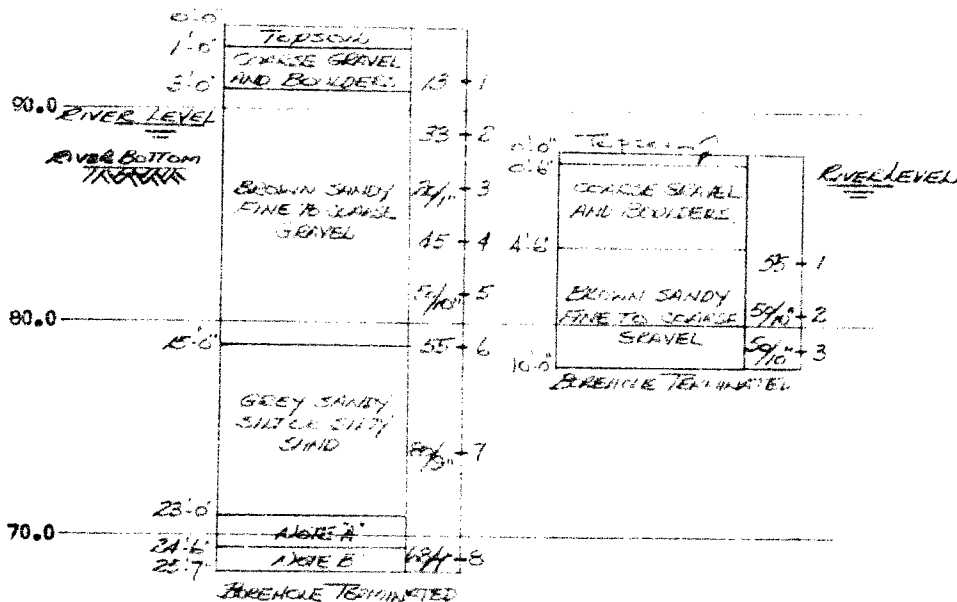 0'-0"
TOPSOIL
1'-0"
COARSE GRAVEL
AND BOULDERS
3'-0"
13 1
90.0
RIVER LEVEL
33 2
RIVER BOTTOM
BROWN SANDY
FINE TO COARSE
GRAVEL
3
45 4
50/10" 5
80.0
15'-0"
55 6
GREY SANDY
SILT OR SILTY
SAND
7
23'-0"
70.0
NOTE "A"
24'-6"
NOTE B
25'-7"
8
BOREHOLE TERMINATED
0'-0"
TOPSOIL
0'-6"
RIVER LEVEL
COARSE GRAVEL
AND BOULDERS
4'-6"
55 1
BROWN SANDY
FINE TO COARSE
GRAVEL
50/10" 2
50/10" 3
10'-0"
BOREHOLE TERMINATED